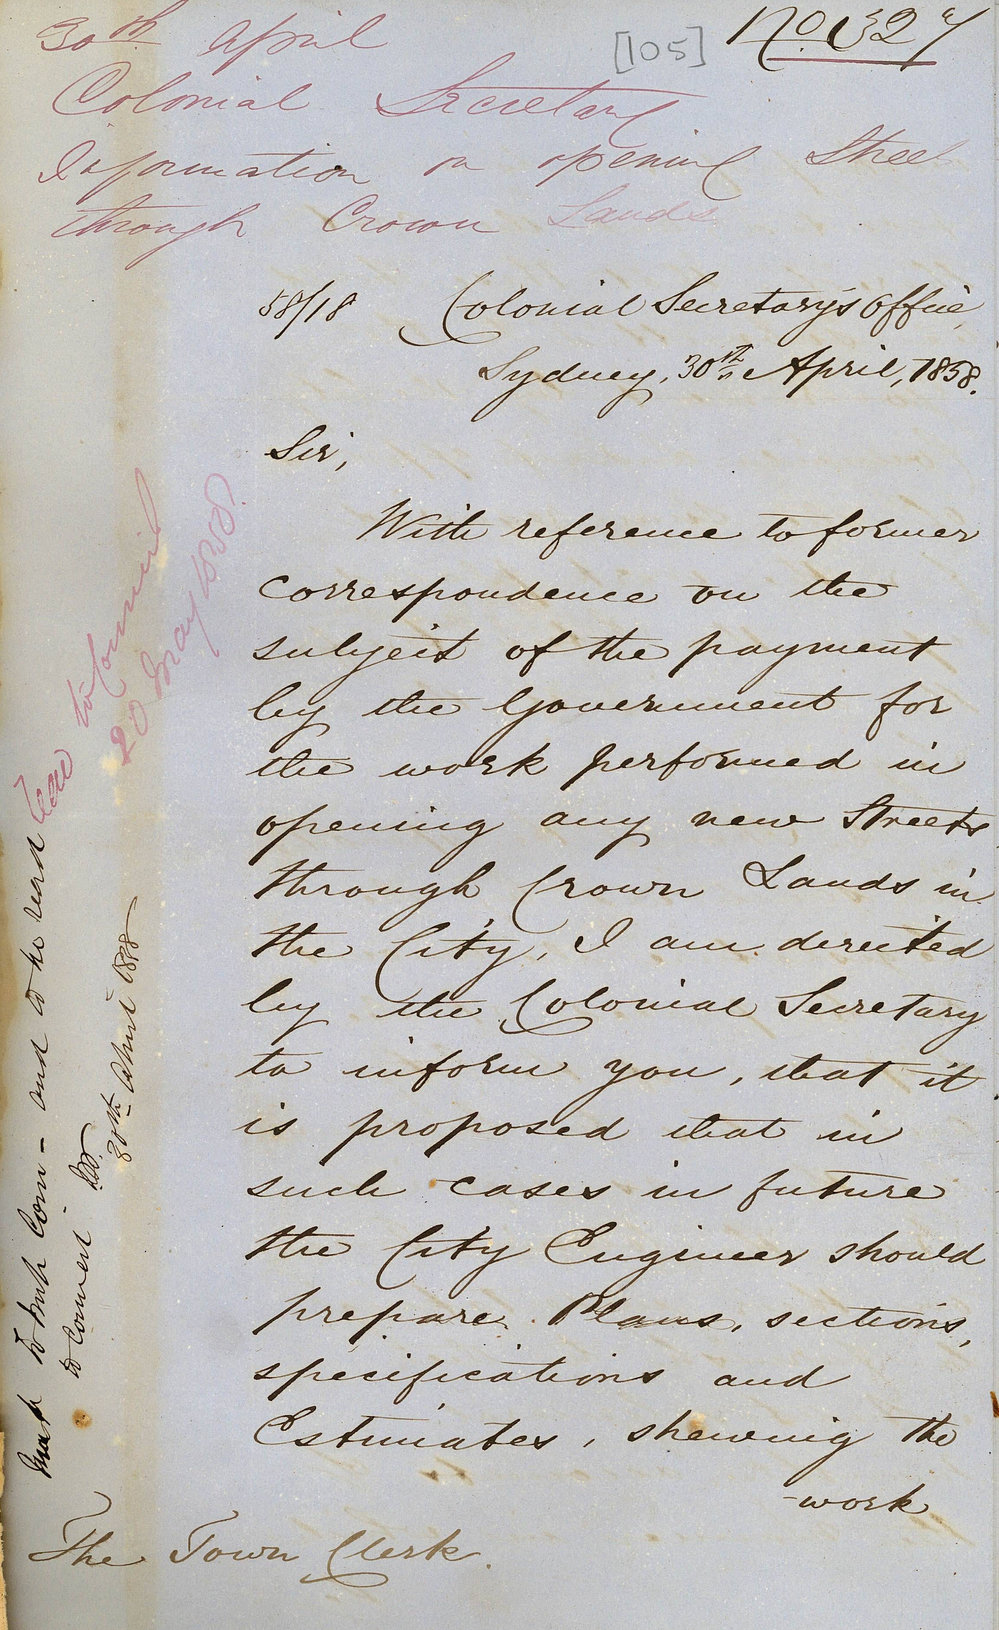 No 327
[105]
30th April
Colonial Secretary
Information on opening Street
through Crown Lands
58/18 Colonial Secretary's Office,
Sydney, 30th April, 1858.
Sir,
With reference to former
correspondence on the
subject of the payment
by the Government for
the work performed in
opening any new Streets
through Crown Lands in
the City, I am directed
by the Colonial Secretary
to inform you, that it
is proposed that in
such cases in future
the City Engineer should
prepare Plans, sections,
specifications and
Estimates, shewing the
work
The Town Clerk.
and to be read
to Council
30th April 1858
to Council
20 May 1858.